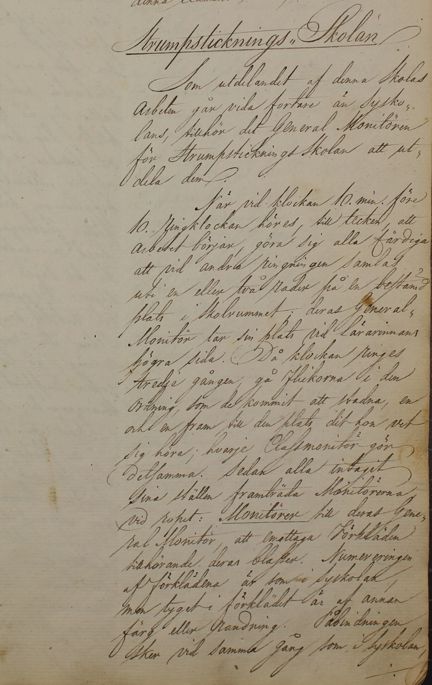 Strumpsticknings-Skolan
Som utdelandet af denna Skolas
Arbeten går vida fortare än Sysko-
lans, tillhör det General Monitören
för Strumpstickningsskolan att ut-
dela dem.
När vid klockan 10 min. före
10. Ringklockan höres, till tecken, att
Arbetet börjar, göra sig alla färdiga
att vid andra ringningen samlas
uti en eller två Rader på en bestämd
plats i skolrummet; deras General-
Monitör tar sin plats vid Lärarinnans
högra sida. Då klockan ringes
tredje gången, gå Flickorna i den
ordning, som de kommit att stadna, en
och en fram till den plats, dit hon vet
sig höra; hvarje Classmonitör gör
detsamma. Sedan alla intagit
sina ställen framträda Monitörerna
vid ropet: Monitörer till deras Gene-
ral Monitör, att emottaga Förkläden
tillhörande deras klasser. Numreringen
af förklädena är som i syskolan,
men tyget i förklädet är af annan
färg eller Randning. Påbindningen
sker vid samma gång som i Syskolan,